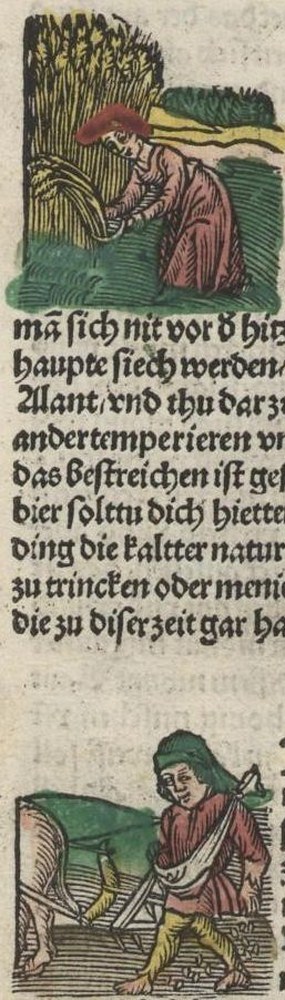 mā sich nit vor ð hitz
haupte siech werden/
Alant/vnd thu dar zů
ander temperieren vn
das bestreichen ist ge
bier solttu dich hiette
ding die kaltter natur
zu trincken oder meni
die zu diser zeit gar ha